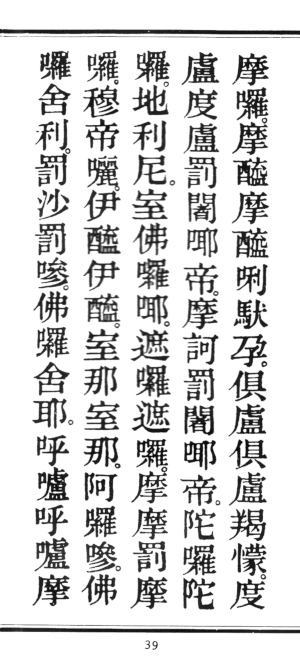 摩囉。摩醯摩醯唎馱孕。俱盧俱盧羯懞。度
盧度盧罰闍耶帝。摩訶罰闍耶帝。陀囉陀
囉。地利尼。室佛囉耶。遮囉遮囉。摩摩罰摩
囉。穆帝囇。伊醯伊醯。室那室那。阿囉嘇。佛
囉舍利。罰沙罰嘇。佛囉舍耶。呼嚧呼嚧摩
39